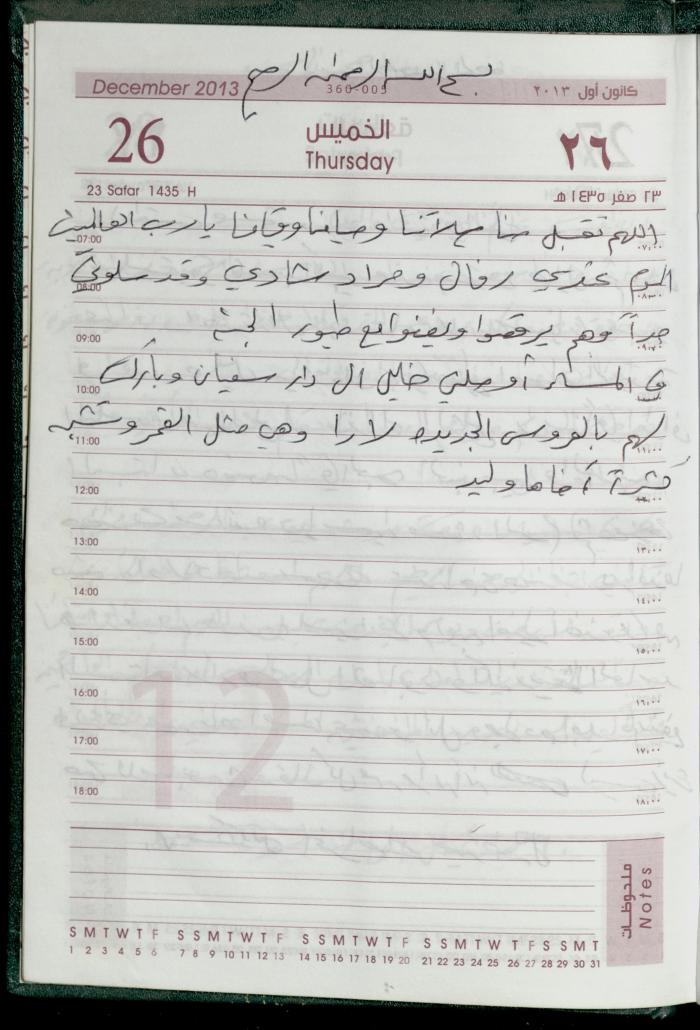 بسم الله الرحمن الرحيم
December 2013 360-005 كانون أول ٢٠١٣
26 الخميس ٢٦
Thursday
23 Safar 1435 H ٢٣ صفر ١٤٣٥ هـ
اللهم تقبل منا صلاتنا وصيامنا وقيامنا يا رب العالمين
07:00 ٠٧:٠٠
اليوم عندي رفال ومراد شادي وقد سلوني
08:00 ٠٨:٠٠
جداً وهم يرقصوا ويغنوا مع طيور الجنة
09:00 ٠٩:٠٠
في المساء أوصلني خليل ال دار سفيان وبارك
10:00
لهم بالعروس الجديده لارا وهي مثل القمر وتشبه
11:00 ١١:٠٠
كثيراً أخاها وليد
12:00 ١٢:٠٠
13:00 ١٣:٠٠
14:00 ١٤:٠٠
15:00 ١٥:٠٠
16:00 ١٦:٠٠
17:00 ١٧:٠٠
18:00 ١٨:٠٠
12
ملحوظات
Notes
S M T W T F S S M T W T F S S M T W T F S S M T W T F S S M T
1 2 3 4 5 6 7 8 9 10 11 12 13 14 15 16 17 18 19 20 21 22 23 24 25 26 27 28 29 30 31